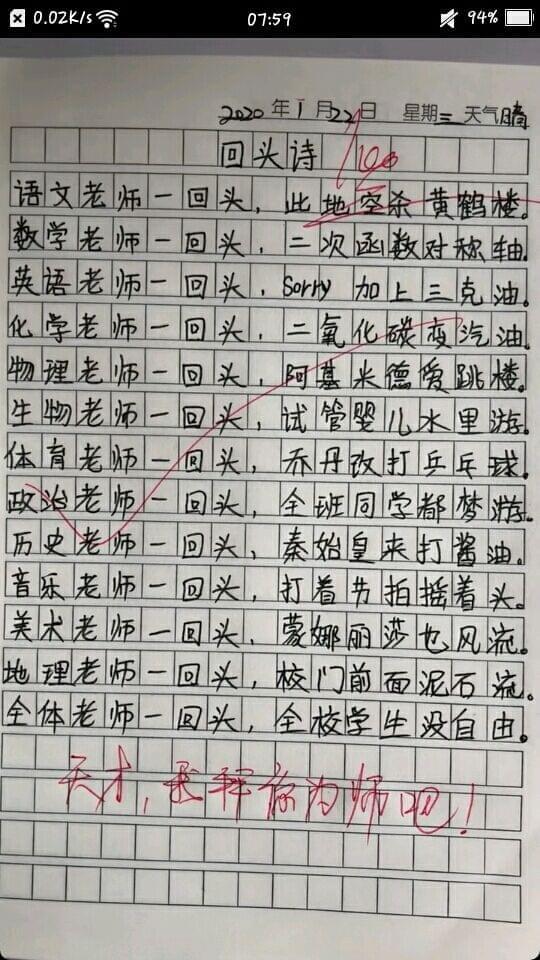 0.02K/s 07:59 94%
2020年1月22日 星期三 天气晴
回头诗
100
语文老师一回头，此地空杀黄鹤楼。
数学老师一回头，二次函数对称轴。
英语老师一回头，Sorry 加上三克油。
化学老师一回头，二氧化碳变汽油。
物理老师一回头，阿基米德爱跳楼。
生物老师一回头，试管婴儿水里游。
体育老师一回头，乔丹改打乒乓球。
政治老师一回头，全班同学都梦游。
历史老师一回头，秦始皇来打酱油。
音乐老师一回头，打着节拍摇着头。
美术老师一回头，蒙娜丽莎也风流。
地理老师一回头，校门前面泥石流。
全体老师一回头，全校学生没自由。
天才，我拜你为师吧！